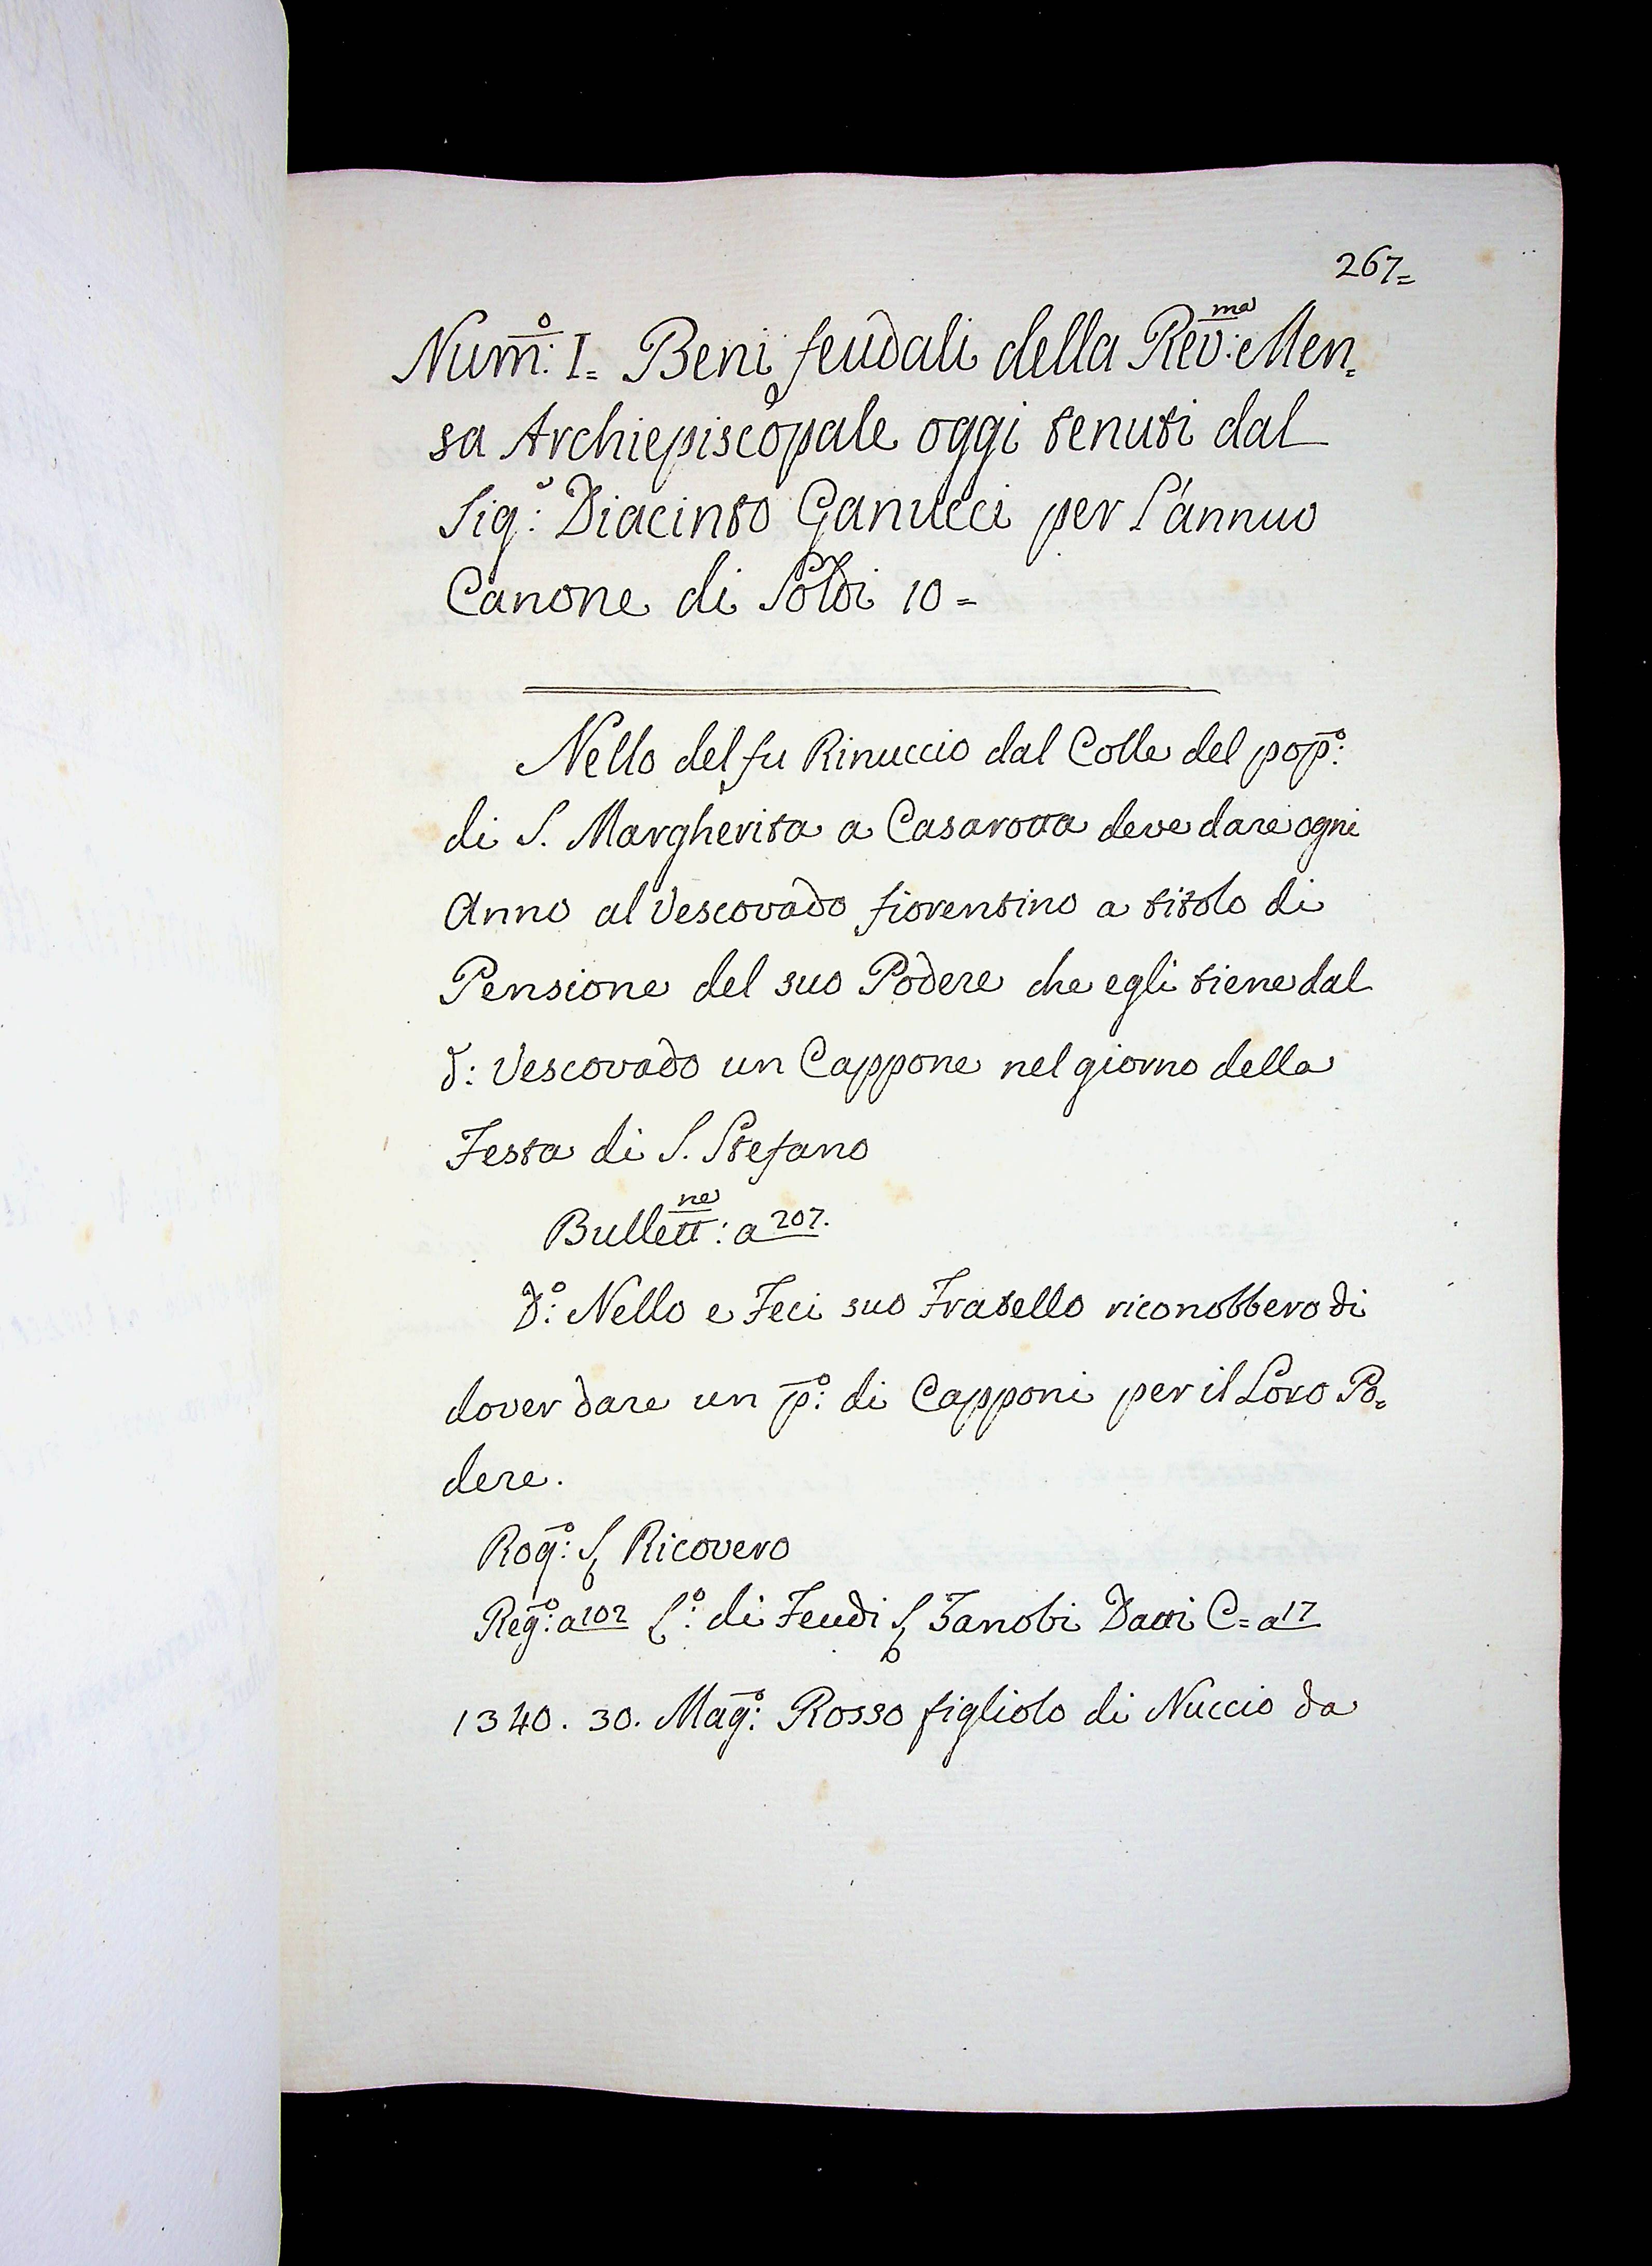 267=
Num:º I= Beni feudali della Rev:ma Men=
sa Archiepiscopale oggi tenuti dal
Sig:e Diacinto Ganucci per l'annuo
Canone di Soldi 10=
Nello del fu Rinuccio dal Colle del pop:º
di S. Margherita a Casarotta deve dare ogni
Anno al Vescovado fiorentino a titolo di
Pensione del suo Podere che egli tiene dal
d: Vescovado un Cappone nel giorno della
Festa di S. Stefano
Bullett:ne a 207.
D:º Nello e Feci suo Fratello riconobbero di
dover dare un p:º di Capponi per il Loro Po=
dere.
Rog:º S. Ricovero
Reg:º a 102 L:º di Feudi S. Zanobi Datti C= a 17
1340. 30. Mag:º Rosso figliolo di Nuccio da